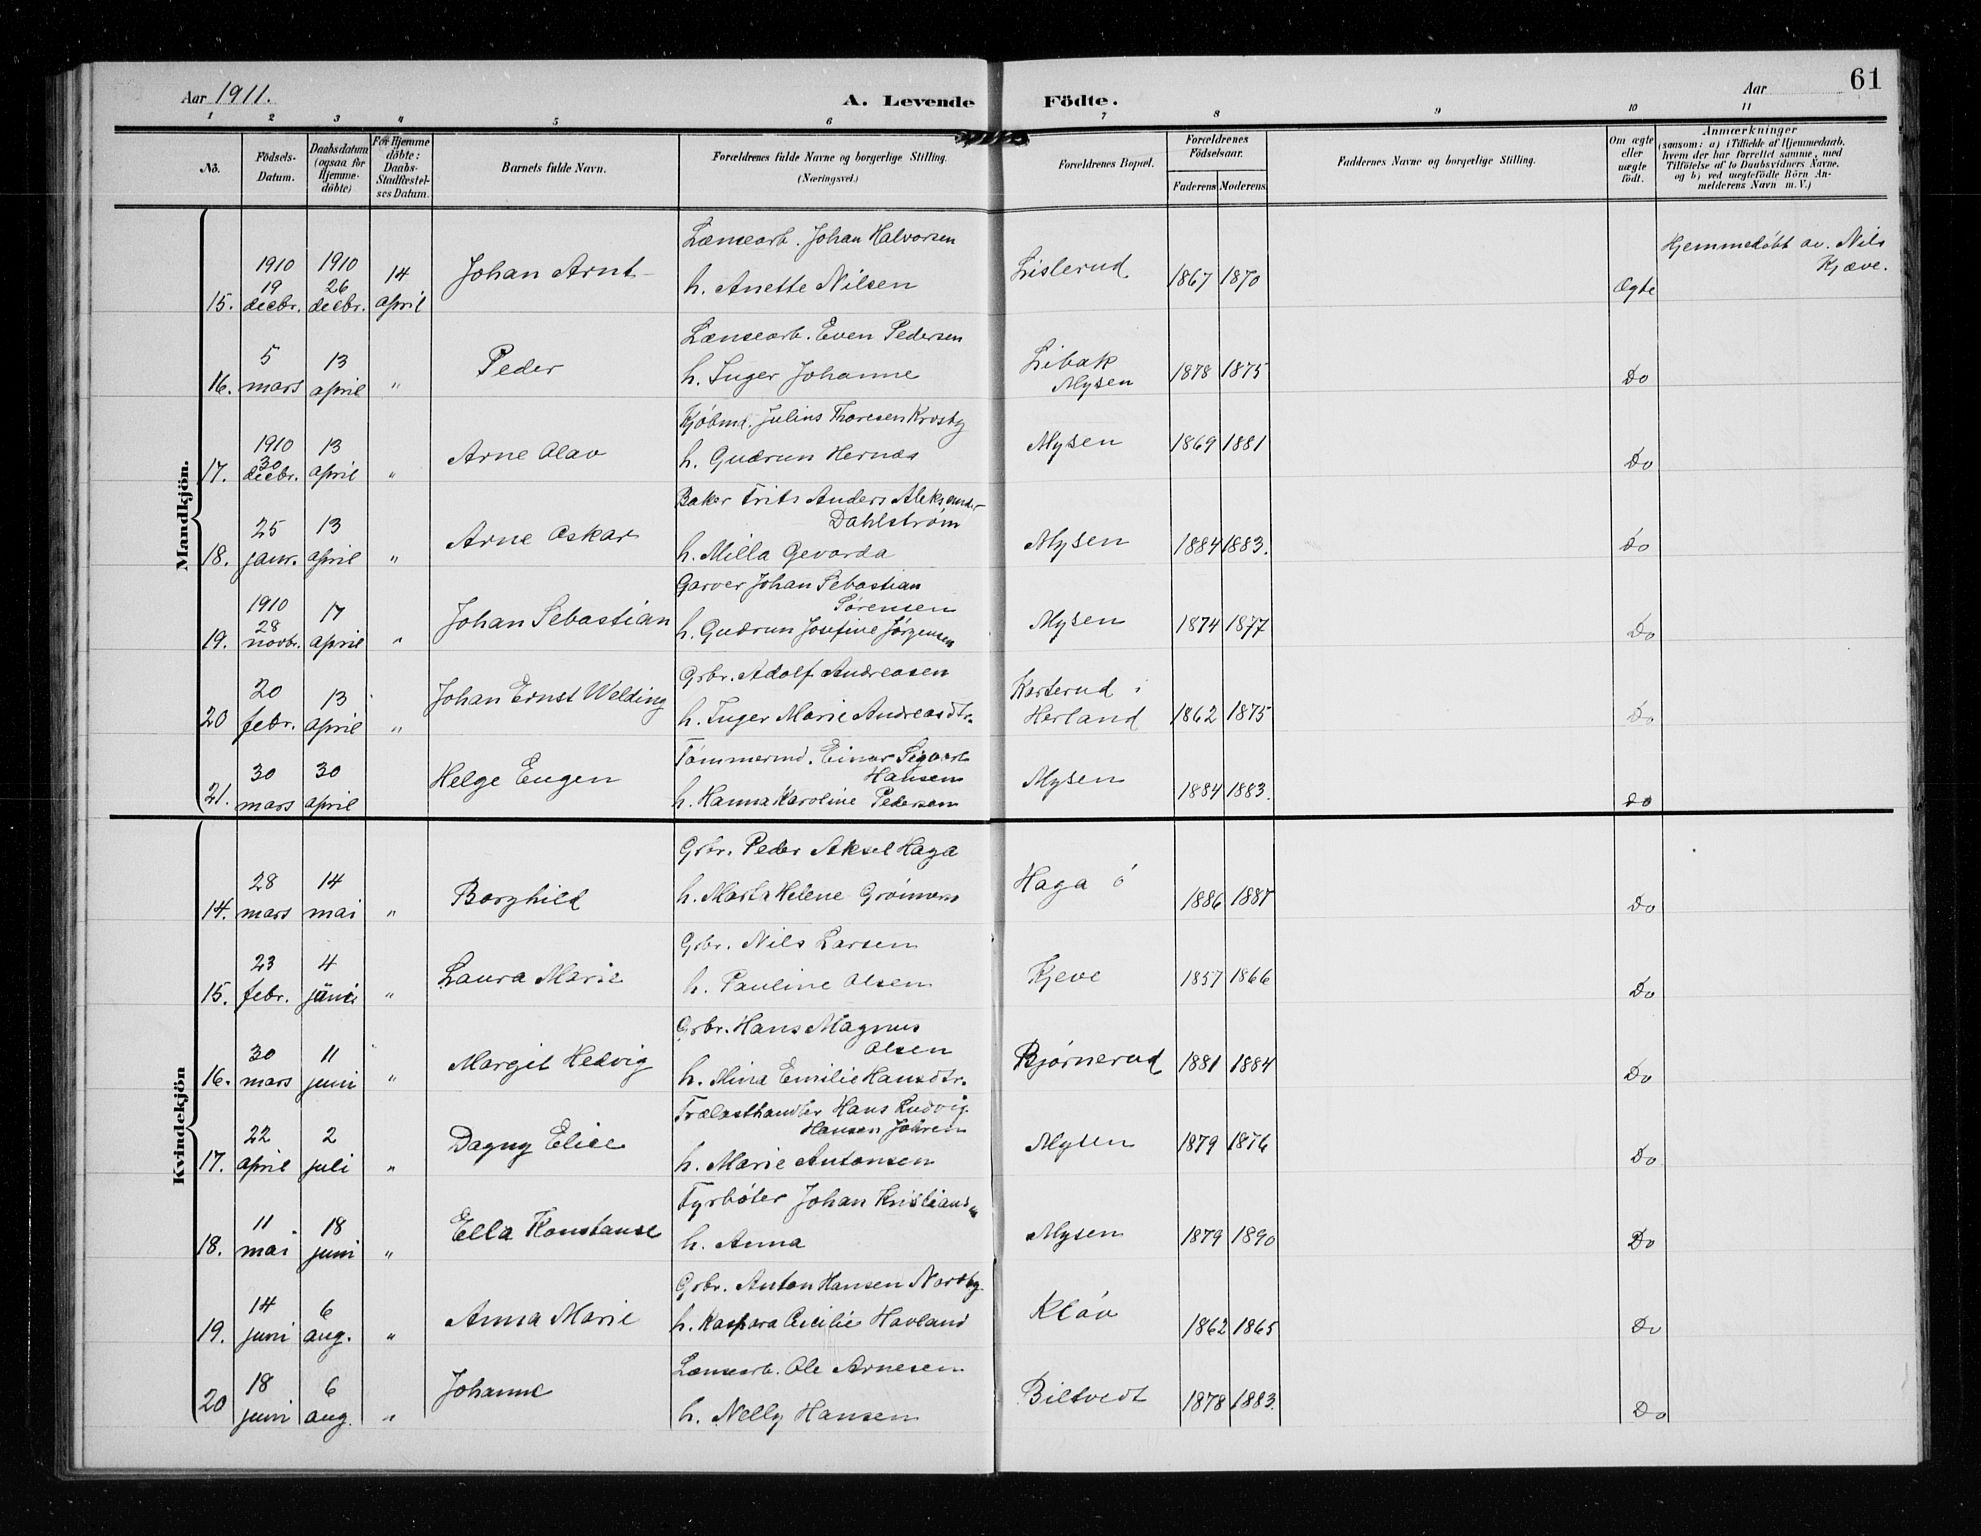 Aar 1911.
A. Levende Födte.
Aar
61
1 2 3 4 5 6 7 8 9 10 11
No.
Födsels-Datum.
Daabsdatum (ogsaa for Hjemmedöbte)
For Hjemmedöbte: Daabs-Stadfæstelses Datum.
Barnets fulde Navn.
Forældrenes fulde Navne og borgerlige Stilling. (Næringsvei.)
Forældrenes Bopæl.
Forældrenes Födselsaar.
Faderens Moderens
Faddernes Navne og borgerlige Stilling.
Om ægte eller uægte födt.
Anmærkninger
(saasom: a) i Tilfælde af Hjemmedaab, hvem der har forrettet samme, med Tilföielse af to Daabsvidners Navne. og b) ved uægtefödte Börn Anmelderens Navn m. V.)
Mandkjön.
15. 1910 19 decbr. 1910 26 decbr. 14 april Johan Arnt Lænsearb. Johan Halvorsen
h. Anette Nilsen Lislerud 1867 1870 Ægte Hjemmedöbt av. Nils Kjæve.
16. 5 mars 13 april " Peder Lænsearb. Even Pedersen
h. Inger Johanne Libak Mysen 1878 1875 Do
17. 1910 30 decbr. 13 april " Arne Olav Kjöbmd. Julius Thoresen Krosby
h. Gudrun Hernæs Mysen 1869 1881 Do
18. 25 janr. 13 april " Arne Oskar Baker Frits Anders Aleksander Dahlström
h. Milla Gevarda Mysen 1884 1883. Do
19. 1910 28 novbr. 17 april " Johan Sebastian Garver Johan Sebastian Sörensen
h. Gudrun Josefine Jörgensen Mysen 1874 1877 Do
20 20 febr. 13 april " Johan Ernst Welding Grbr. Adolf Andreasen
h. Inger Marie Andreasdtr. Karterud i Herland 1862 1875 Do
21. 30 mars 30 april Helge Eugen Tömmermd. Einar Sigvart Hansen
h. Hanna Karoline Pedersen Mysen 1884 1883. do
Kvindekjön
14. 28 mars 14 mai " Borghild Grbr. Peder Aksel Haga
h. Marta Helene Haga ö 1886 1887 Do
15. 23 febr. 4 juni " Laura Marie Grbr. Nils Larsen
h. Pauline Olsen Kjeve 1857 1866 Do
16. 30 mars 11 juni " Margit Hedvig Grbr. Hans Magnus Olsen
h. Mina Emilie Hansdtr. Björnerud 1881 1884 Do
17. 22 april 2 juli " Dagny Elise Trælasthandler Hans Ludvig Hansen Jahren
h. Marie Antonsen Mysen 1879 1876 Do
18. 11 mai 18 juni " Ella Konstanse Fyrböter Johan Kristiansen
h. Anna Mysen 1879 1890 Do
19. 14 juni 6 aug. " Anna Marie Grbr. Anton Hansen Nordby
h. Kaspara Cicilie Havland Kläv 1862 1865 Do
20 18 juni 6 aug. " Johanne Lænsearb. Ole Arnesen
h. Nelly Hansen Biltvedt 1878 1883. Do